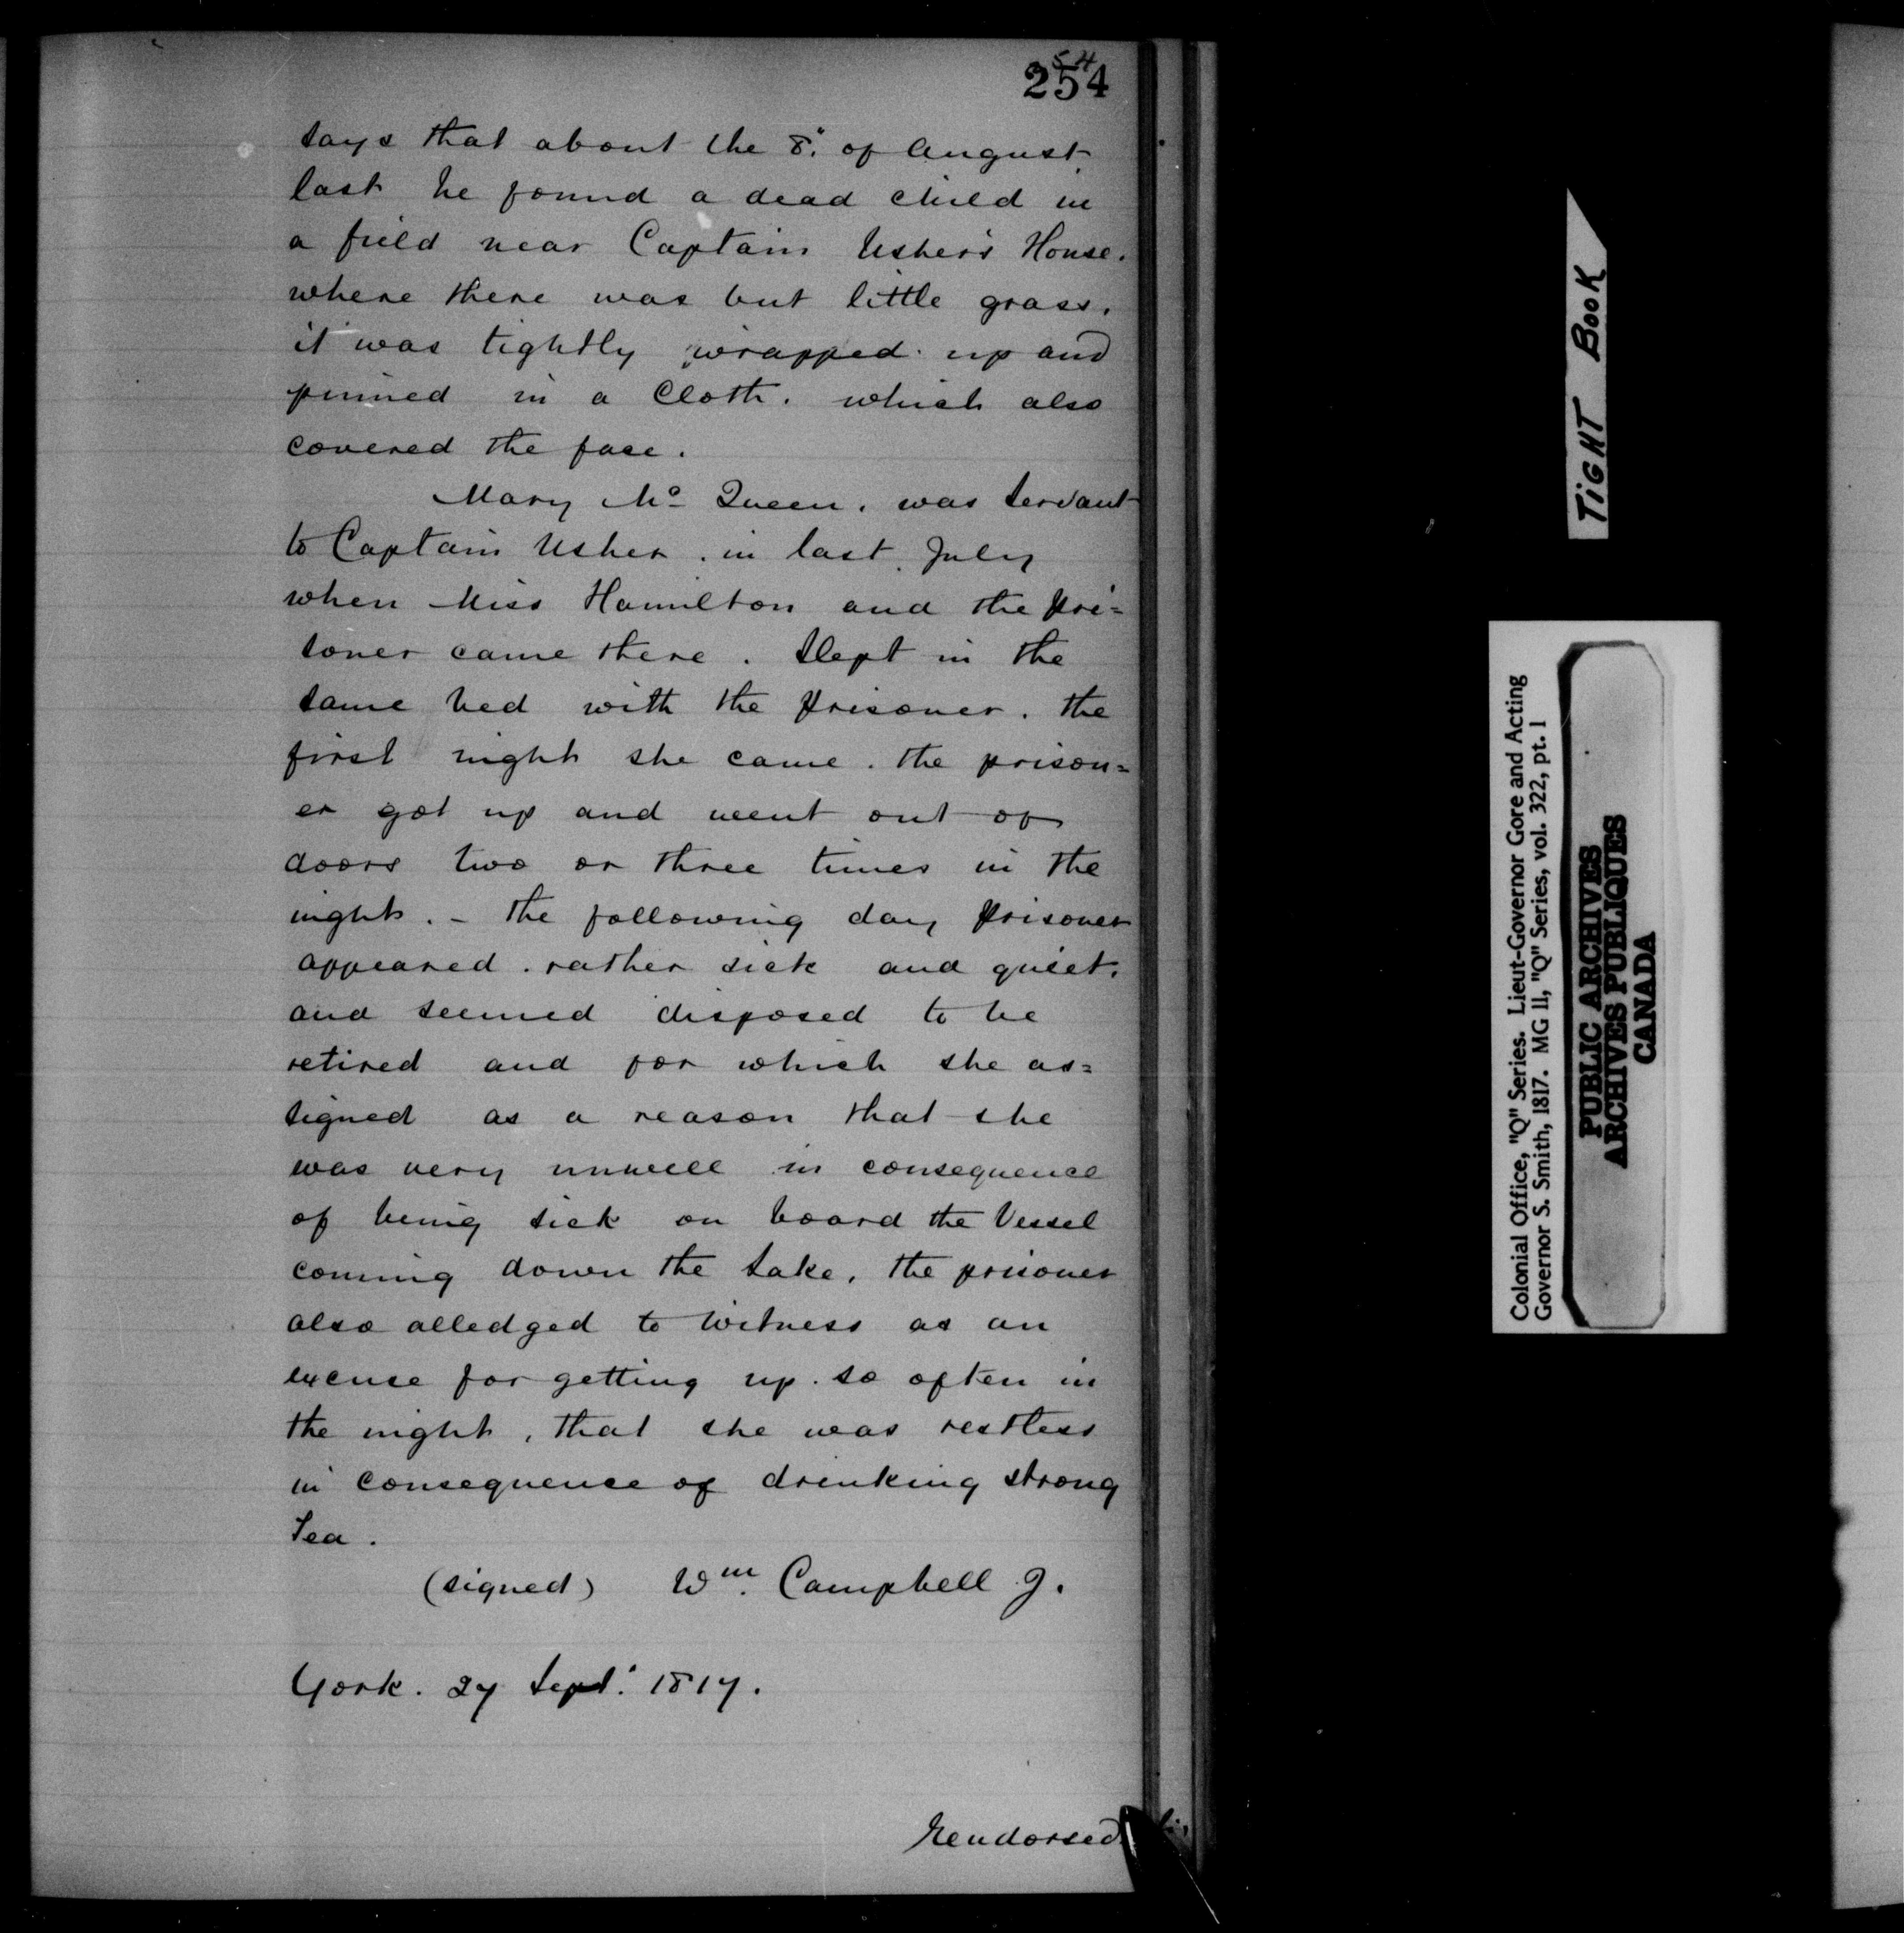 254
54
says that about the 8th of August
last he found a dead child in
a field near Captain Usher's House.
where there was but little grass.
it was tightly wrapped up and
pinned in a Cloth. which also
covered the face.
Mary Mc Queen. was servant
to Captain Usher. in last July
when Miss Hamilton and the pri=
soner came there. Slept in the
same bed with the prisoner. the
first night she came. the prison=
er got up and went out of
doors two or three times in the
night. - the following day prisoner
appeared. rather sick and quiet.
and seemed disposed to be
retired and for which she as=
signed as a reason that she
was very unwell in consequence
of being sick on board the Vessel
coming down the Lake. the prisoner
also alledged to Witness as an
excuse for getting up so often in
the night, that she was restless
in consequence of drinking strong
Tea.
(signed) Wm. Campbell J.
York. 27 Sept. 1817.
Endorsed
TIGHT BOOK
Colonial Office, "Q" Series. Lieut-Governor Gore and Acting
Governor S. Smith, 1817. MG 11, "Q" Series, vol. 322, pt. 1
PUBLIC ARCHIVES
ARCHIVES PUBLIQUES
CANADA